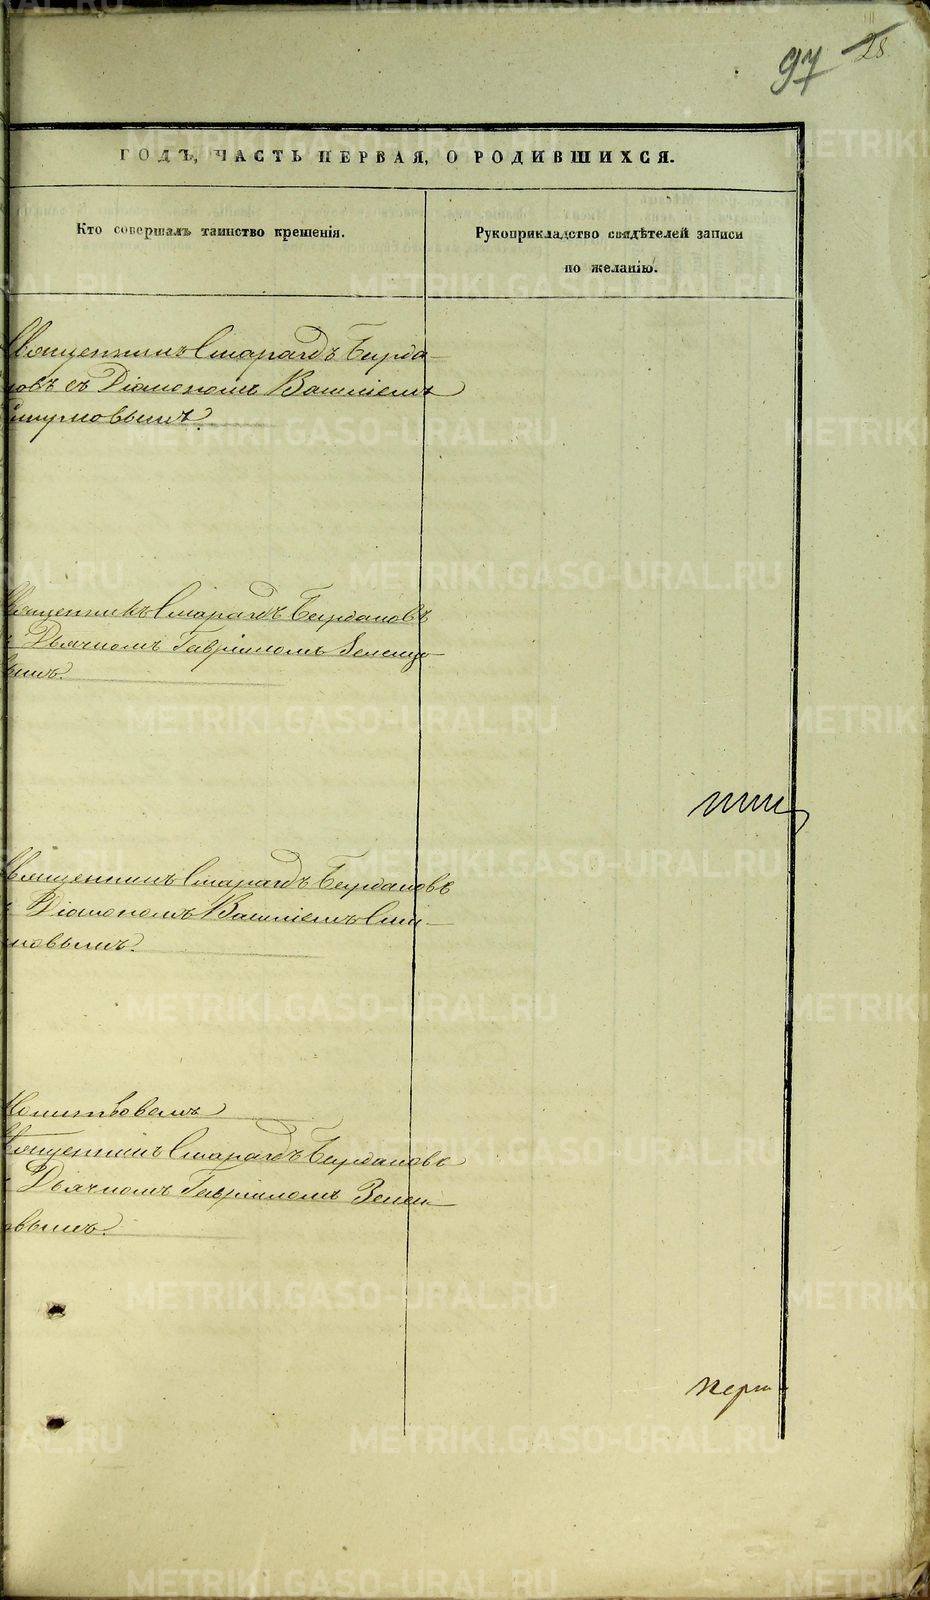 97 28
ГОДЪ, ЧАСТЬ ПЕРВАЯ, О РОДИВШИХСЯ.
Кто совершалъ таинство крещенія.
Рукоприкладство свидѣтелей записи
по желанію.
Священникъ Смарагдъ Бирда-
новъ съ Діакономъ Василіемъ
Священникъ Смарагдъ Бирдановъ
Дьячкомъ Гавріиломъ
вымъ.
Священникъ Смарагдъ Бирдановъ
Діакономъ Василіемъ
новымъ.
Священникъ Смарагдъ Бирдановъ
Дьячкомъ Гавріиломъ
овымъ.
METRIKI.GASO-URAL.RU